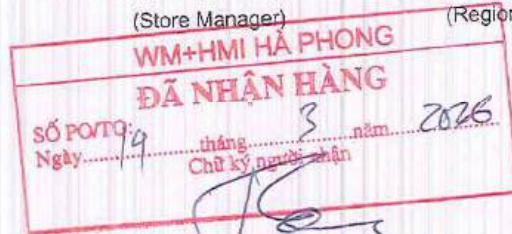 (Store Manager) (Region
WM+HMI HÀ PHONG
ĐÃ NHẬN HÀNG
SỐ PO/TO:
Ngày 19 tháng 3 năm 2026
Chữ ký người nhận